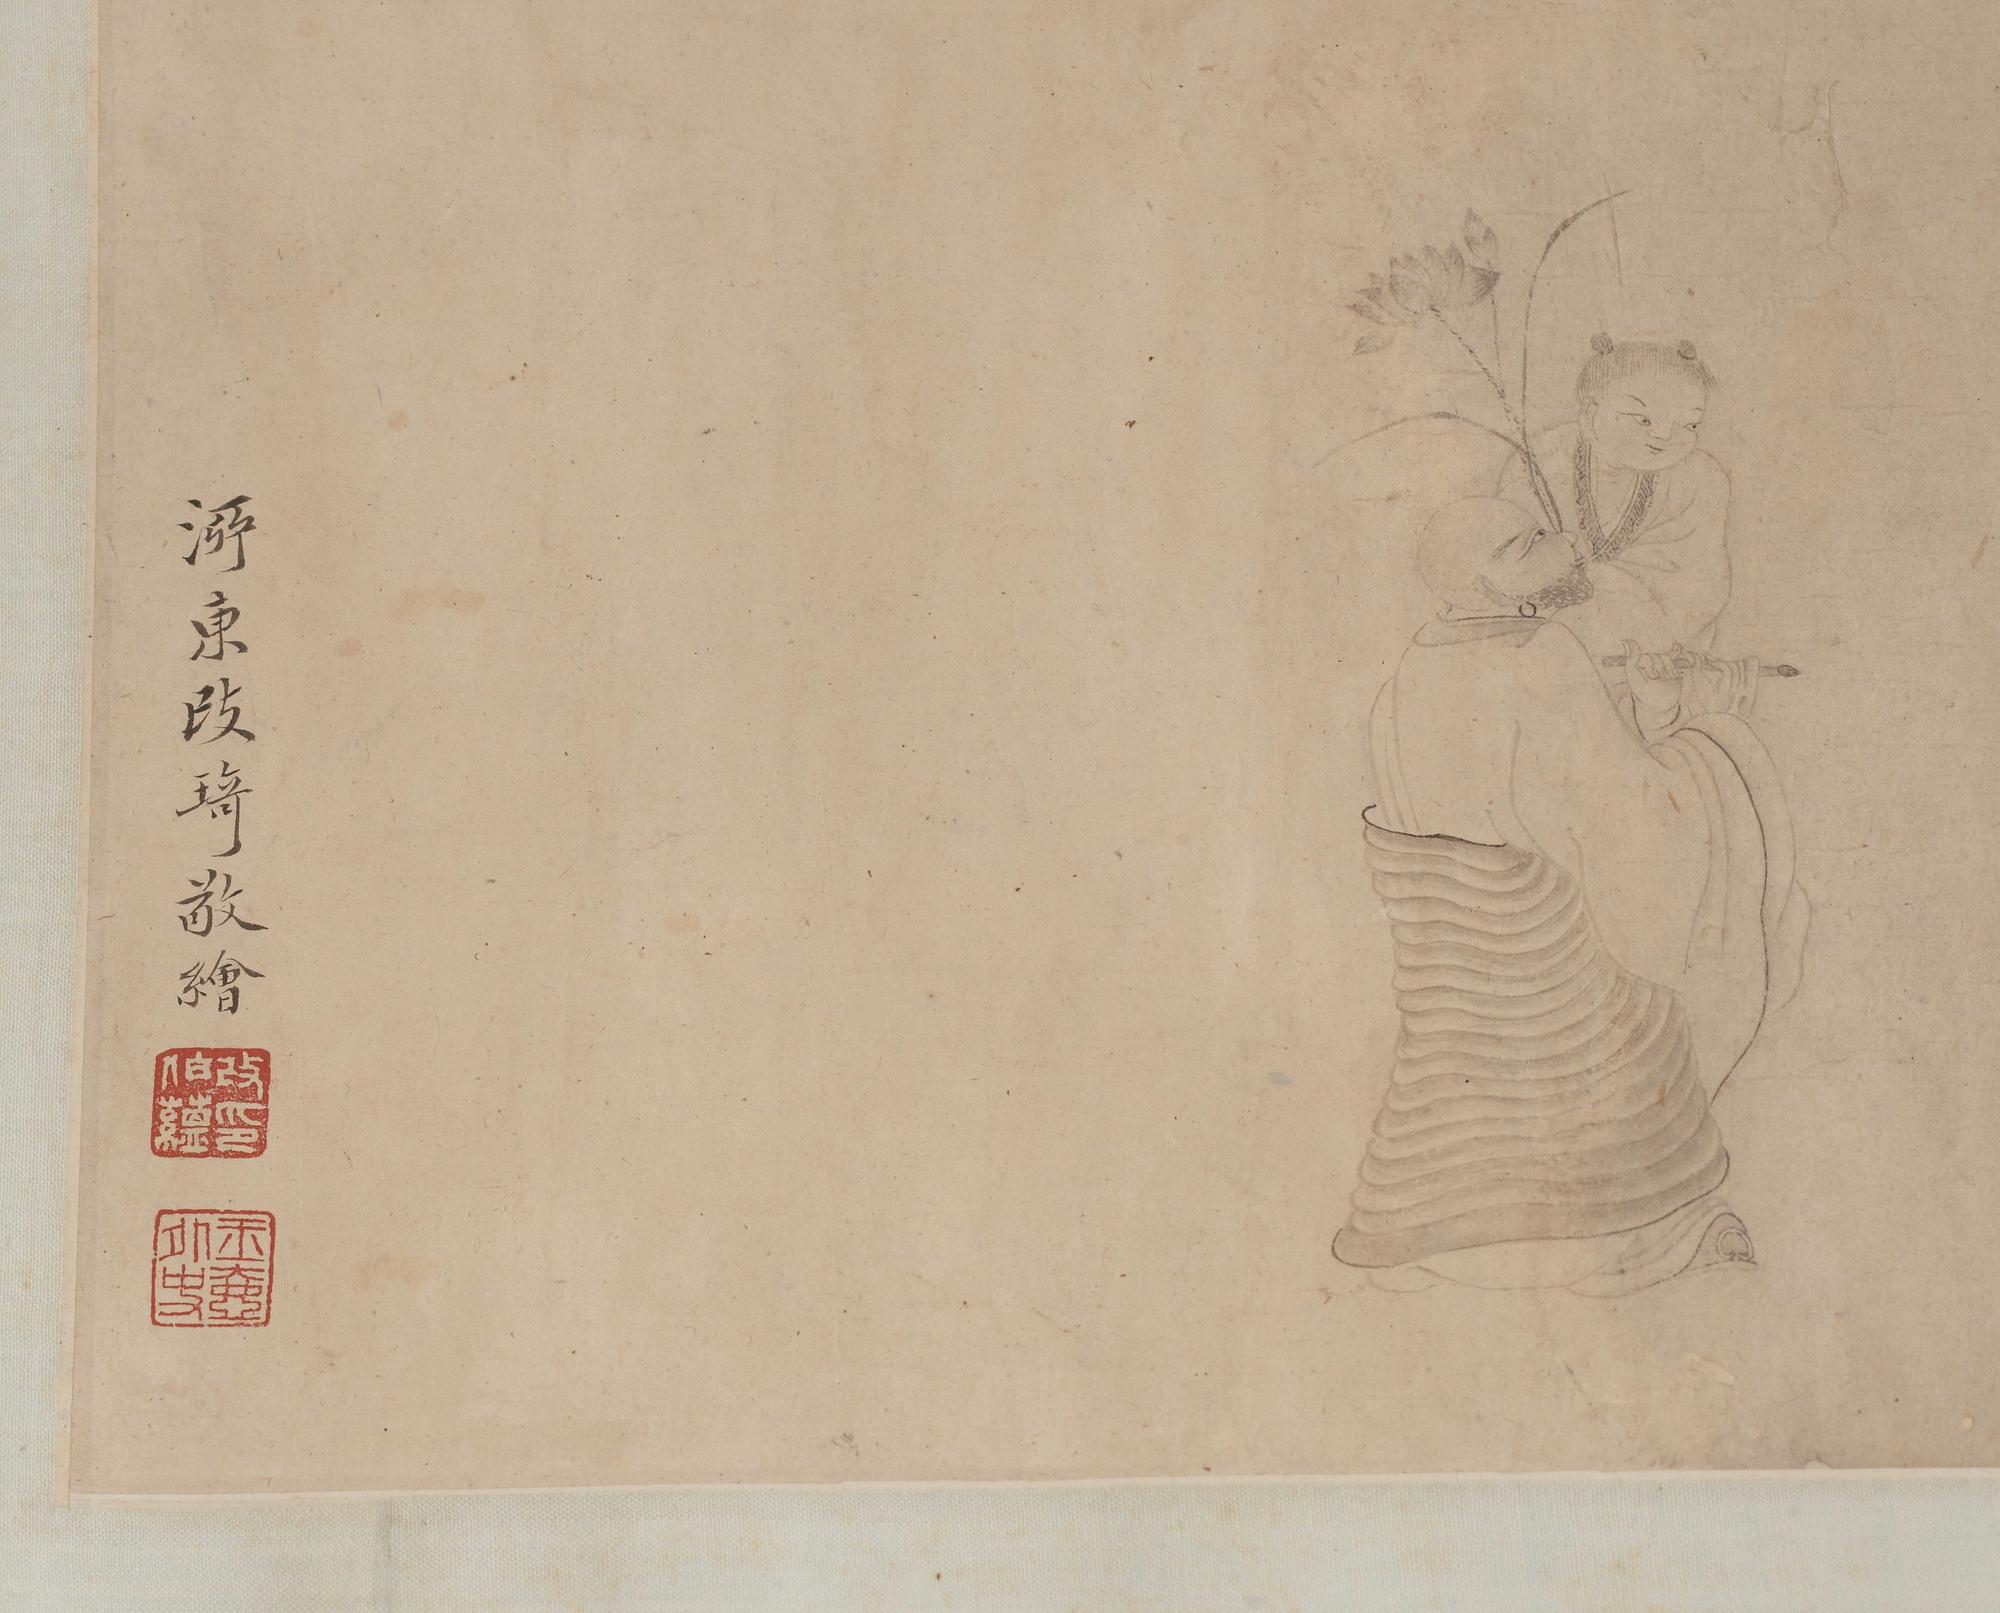 泖東改琦敬繪
改印
伯蘊
玉壺
外史